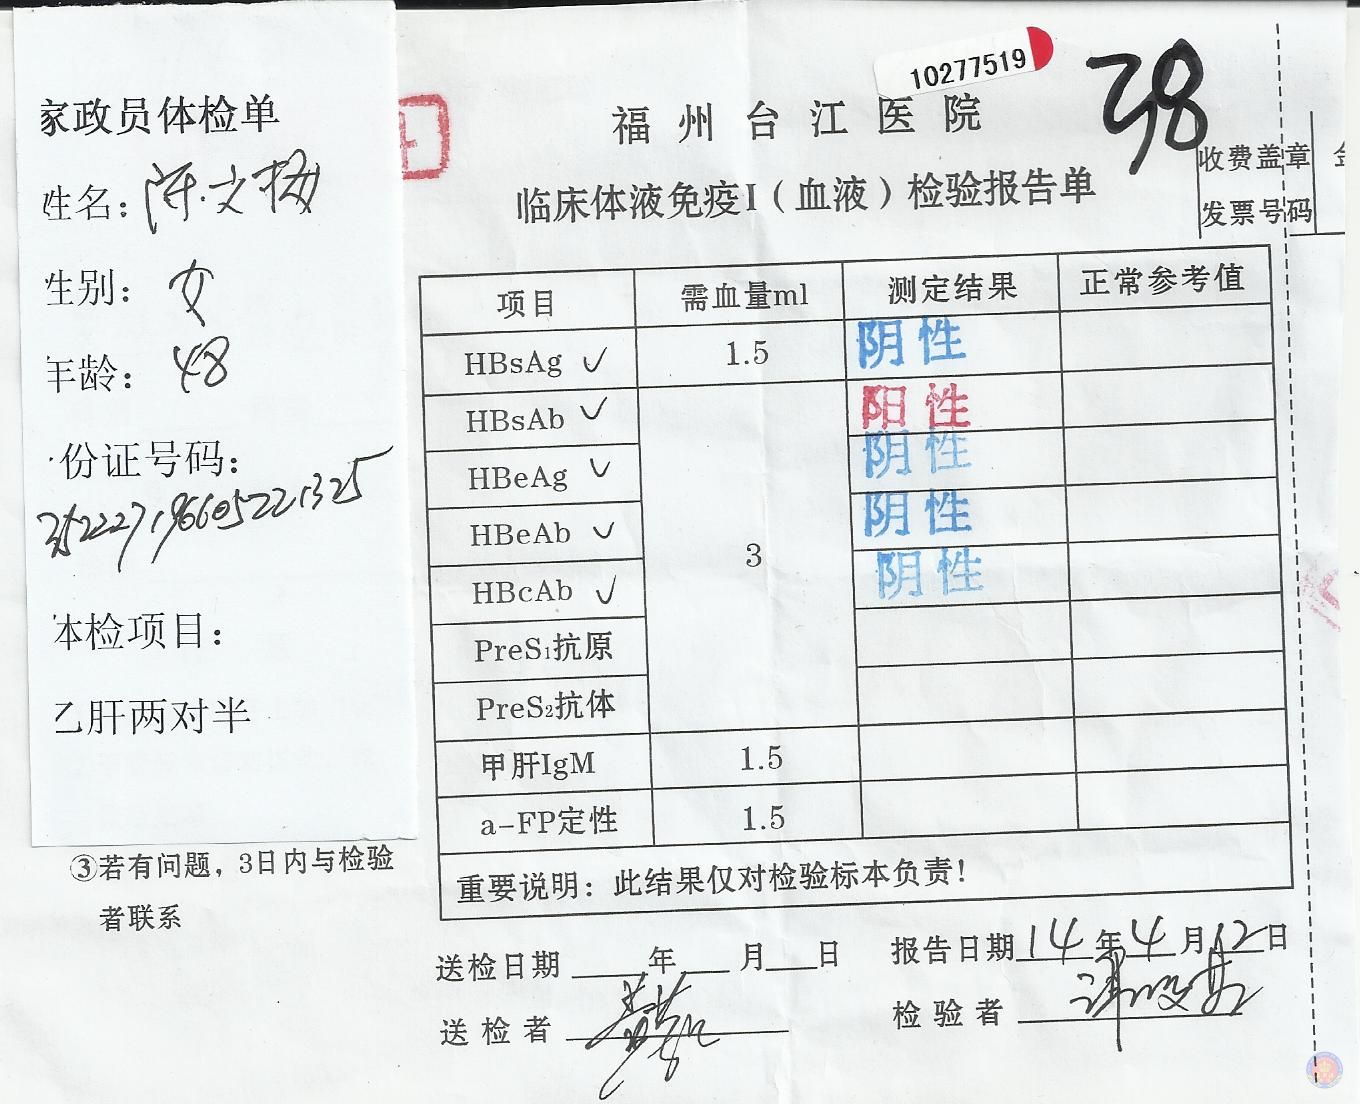 家政员体检单
姓名：陈文杨
性别：女
年龄：48
份证号码：
352227196605221325
本检项目：
乙肝两对半
③若有问题，3日内与检验
者联系
10277519
38
福州台江医院
临床体液免疫I（血液）检验报告单
收费盖章
发票号码
项目 需血量ml 测定结果 正常参考值
HBsAg ✓ 1.5 阴性
HBsAb ✓ 阳性
HBeAg ✓ 阴性
HBeAb ✓ 3 阴性
HBcAb ✓ 阴性
PreS₁抗原
PreS₂抗体
甲肝IgM 1.5
a-FP定性 1.5
重要说明：此结果仅对检验标本负责！
送检日期 年 月 日 报告日期 14年4月12日
送检者 检验者